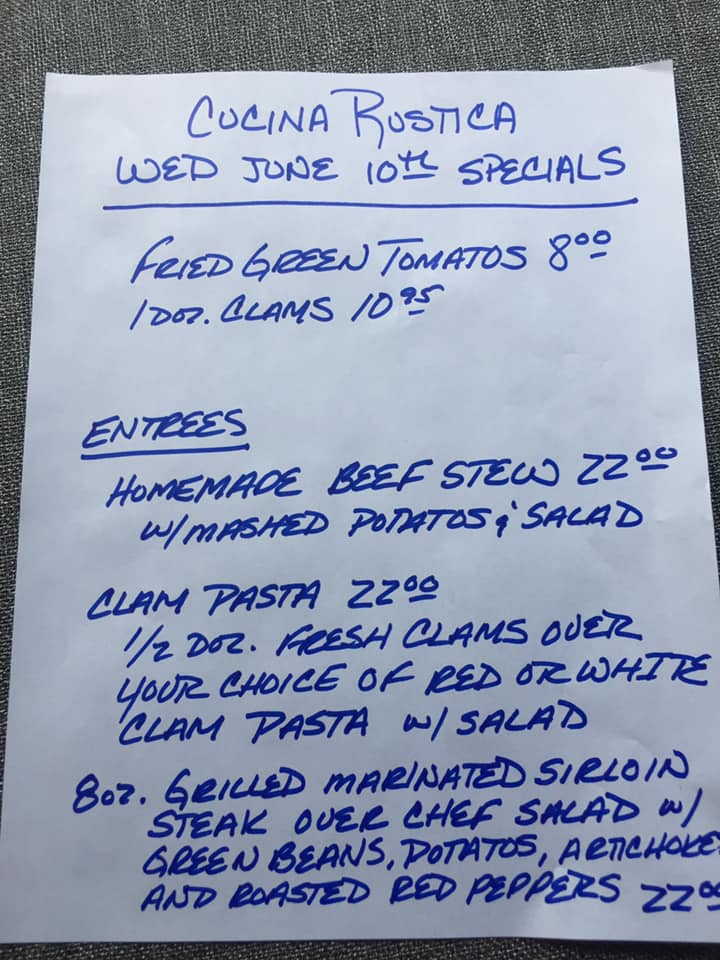 CUCINA RUSTICA
WED JUNE 10th SPECIALS
FRIED GREEN TOMATOS 8 00
1 DOZ. CLAMS 10 95
ENTREES
HOMEMADE BEEF STEW 22 00
W/MASHED POTATOS & SALAD
CLAM PASTA 22 00
1/2 DOZ. FRESH CLAMS OVER
YOUR CHOICE OF RED OR WHITE
CLAM PASTA W/ SALAD
8oz. GRILLED MARINATED SIRLOIN
STEAK OVER CHEF SALAD W/
GREEN BEANS, POTATOS, ARTICHOKE
AND ROASTED RED PEPPERS 22 00